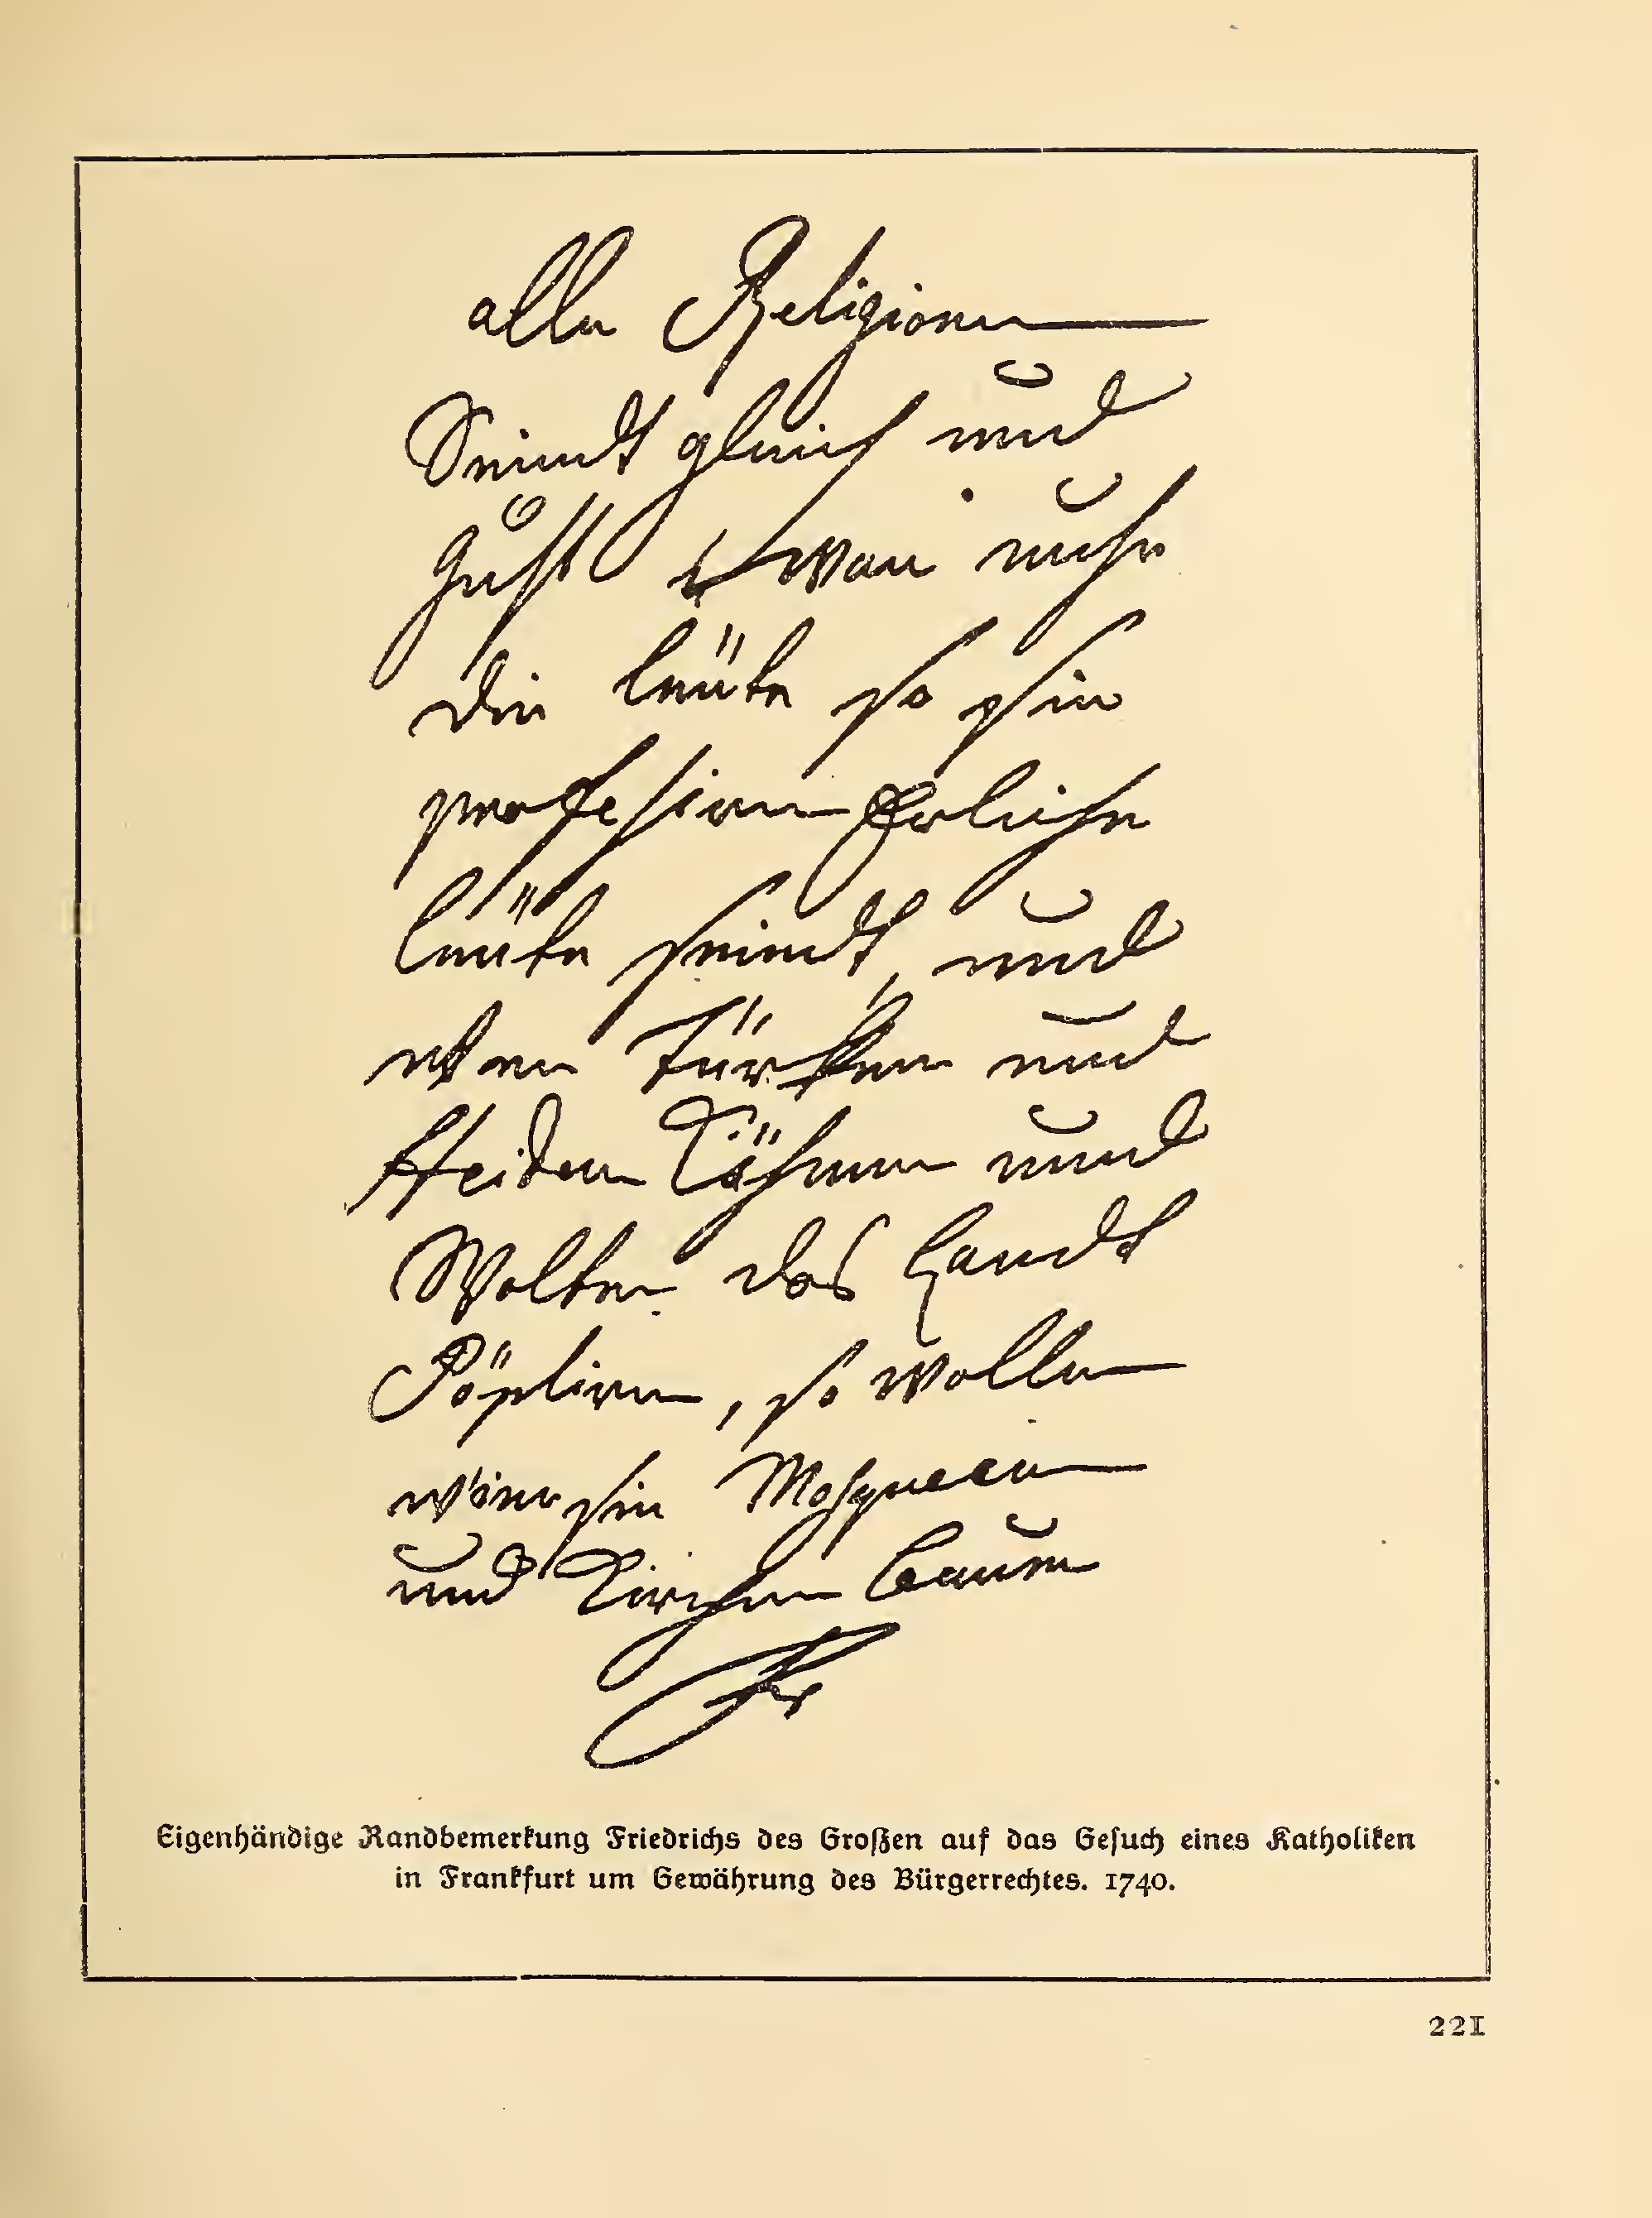 alle Religionen
Seindt gleich und
guht wan nuhr
die leüte so sie
profesiren Erliche
leüte seindt, und
wen Türken und
Heiden Köhmen und
Wolten das Landt
Pöpliren, so wollen
wier sie Mosqueen
und Kirchen bauen
Fr
Eigenhändige Randbemerkung Friedrichs des Großen auf das Gesuch eines Katholiken
in Frankfurt um Gewährung des Bürgerrechtes. 1740.
221